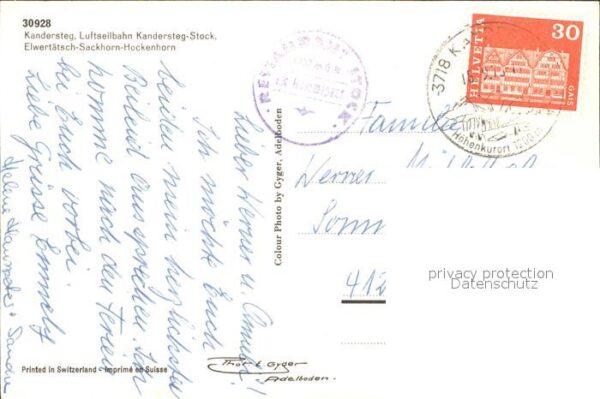 30928
Kandersteg, Luftseilbahn Kandersteg-Stock,
Elwertätsch-Sackhorn-Hockenhorn
Lieber Werner u. Anneli!
Ich möchte Euch
beiden mein herzlichstes
Beileid aussprechen. Ich
komme nach den Ferien
bei Euch vorbei.
Liebe Grüsse Emmely
Colour Photo by Gyger, Adelboden
RESTAURANT STOCK
HELVETIA
30
GAIS
3718 KA
Höhenkurort 1200 m
Familie
Werner
412
privacy protection
Datenschutz
Printed in Switzerland - Imprimé en Suisse
Thor E Gyger
Adelboden.